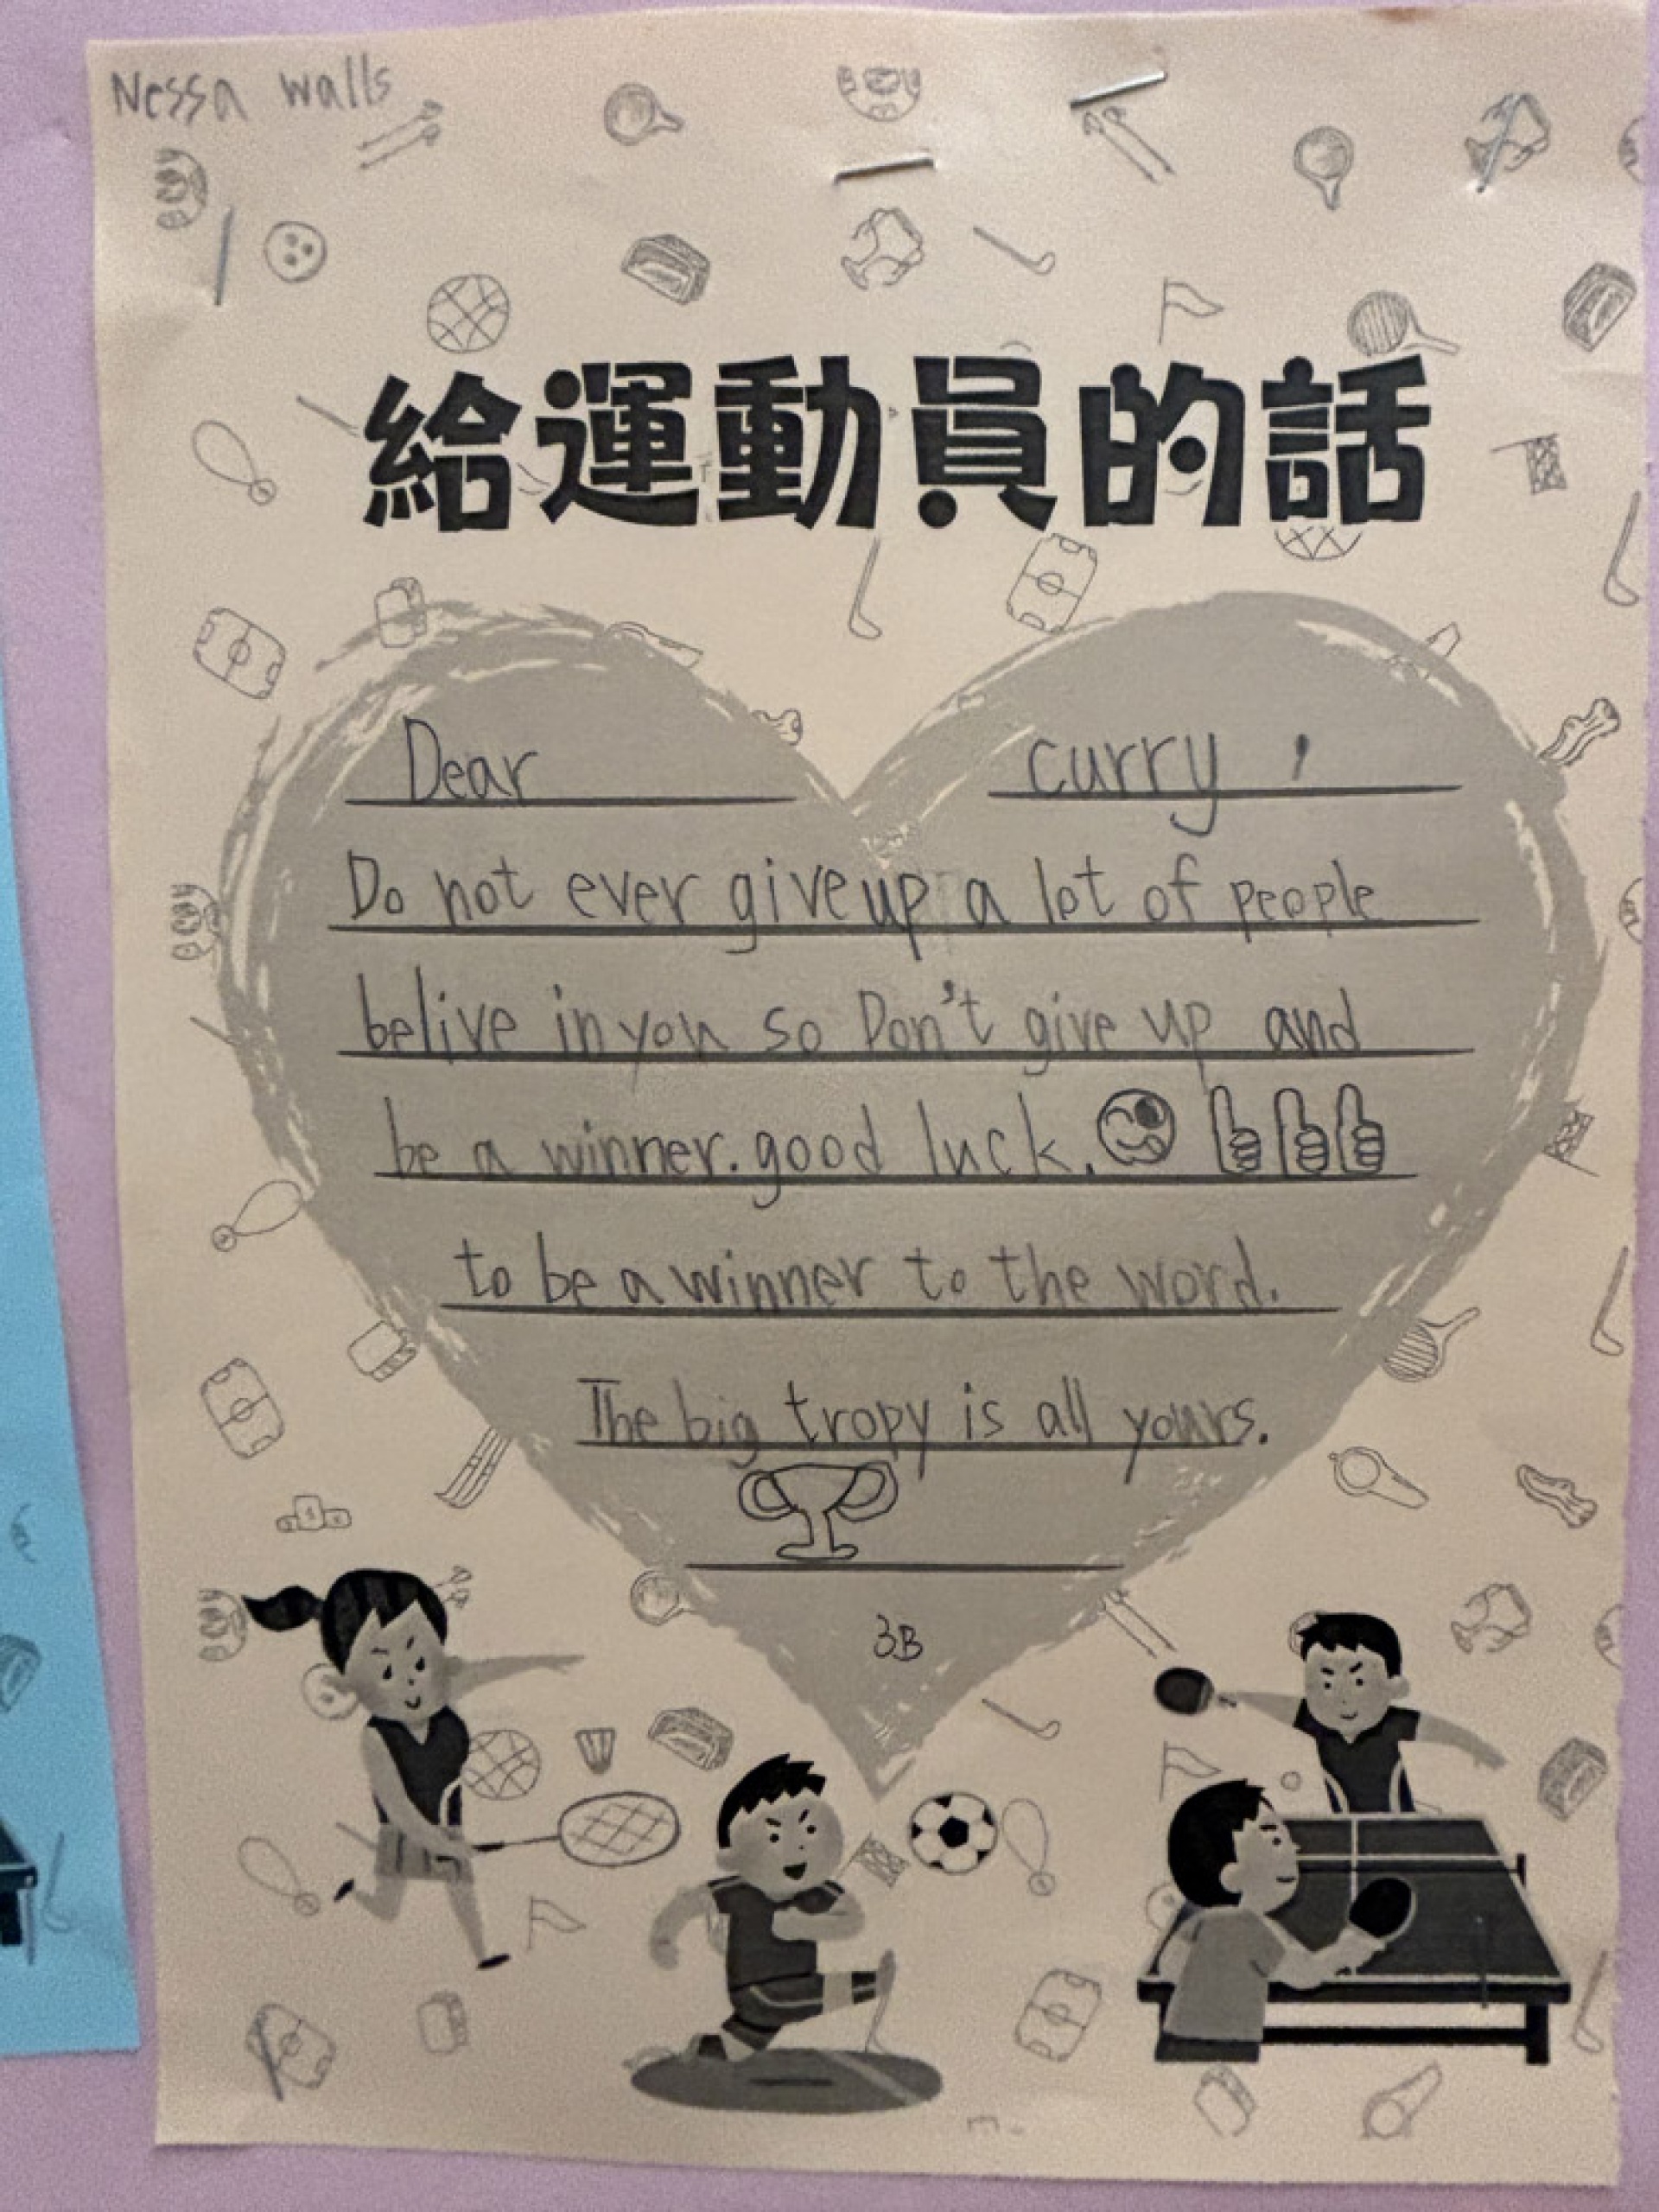 Nessa walls
給運動員的話
Dear curry ,
Do not ever give up a lot of people
belive in you so Don't give up and
be a winner. good luck.
to be a winner to the word.
The big tropy is all yours.
3B